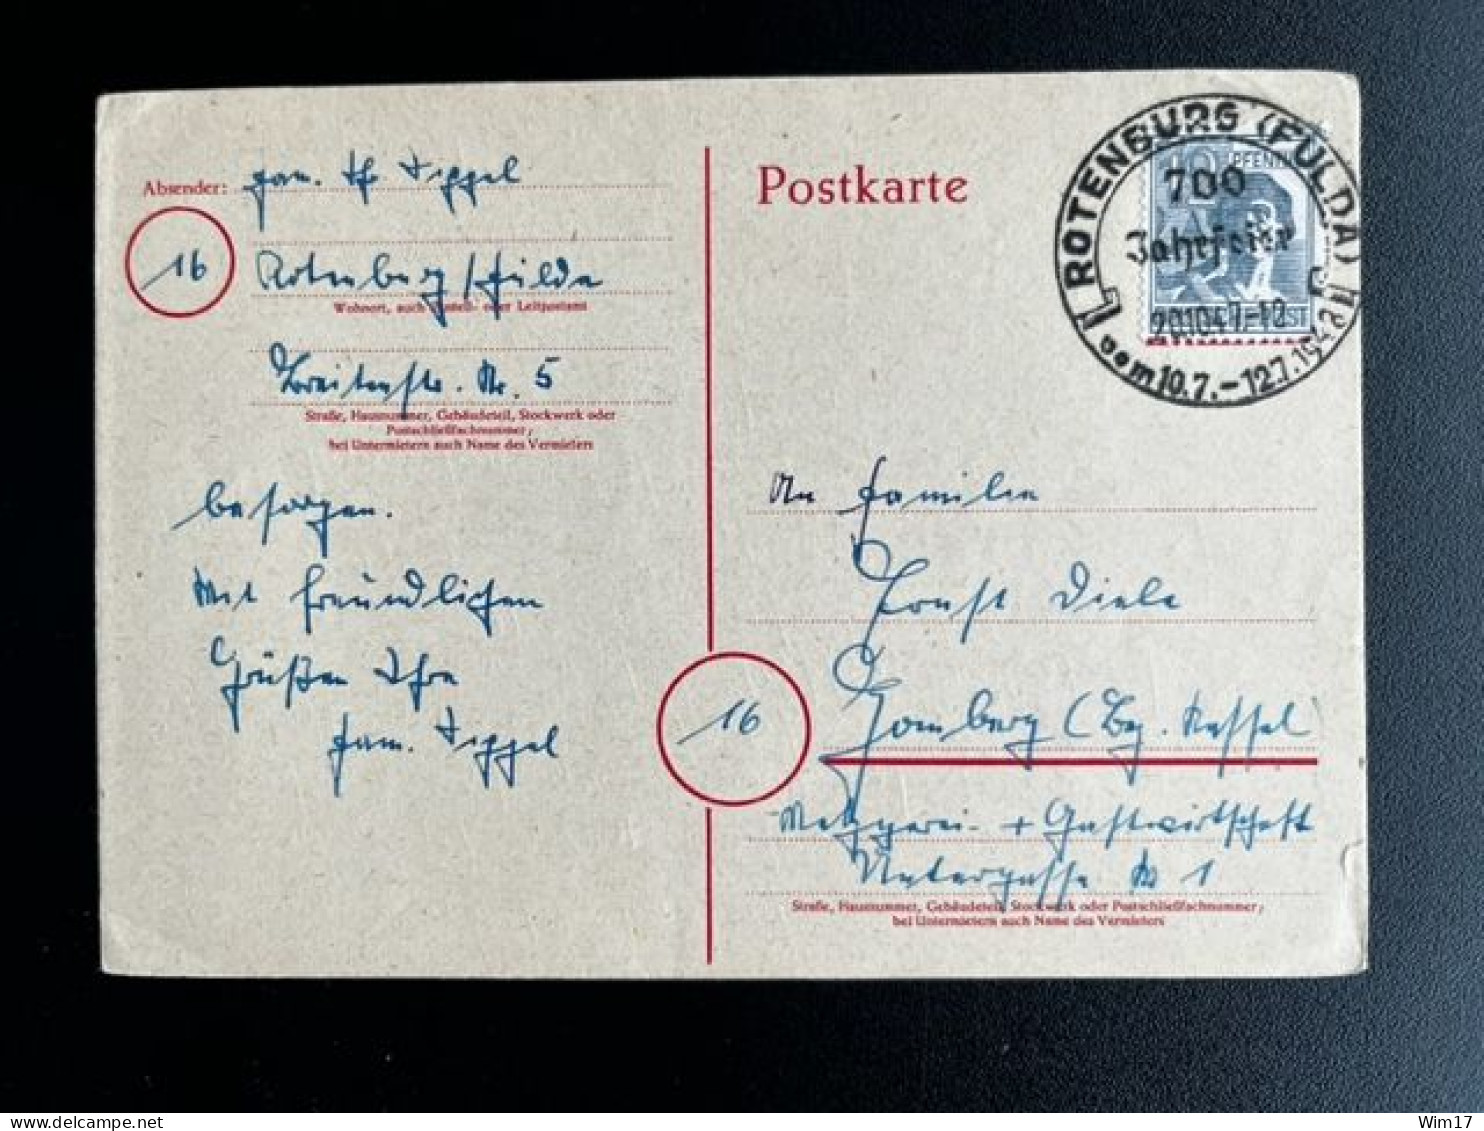 Absender: Fam. Th. Dippel
16
Rotenburg/Fulda
Wohnort, auch Zustell- oder Leitpostamt
Breitenstr. Nr. 5
Straße, Hausnummer, Gebäudeteil, Stockwerk oder
Postschließfachnummer;
bei Untermietern auch Name des Vermieters
besorgen.
Mit freundlichen
Grüßen Ihre
Fam. Dippel
Postkarte
ROTENBURG (FULDA)
PFENNIG
700
Jahrfeier
20.10.47.-12
POST
vom 10.7.-12.7.1948
An Familie
Ernst Diele
16
Homberg (Bz. Kassel)
Metzgerei + Gastwirtschaft
Untergasse Nr 1
Straße, Hausnummer, Gebäudeteil, Stockwerk oder Postschließfachnummer;
bei Untermietern auch Name des Vermieters
delcampe.net
Wim17